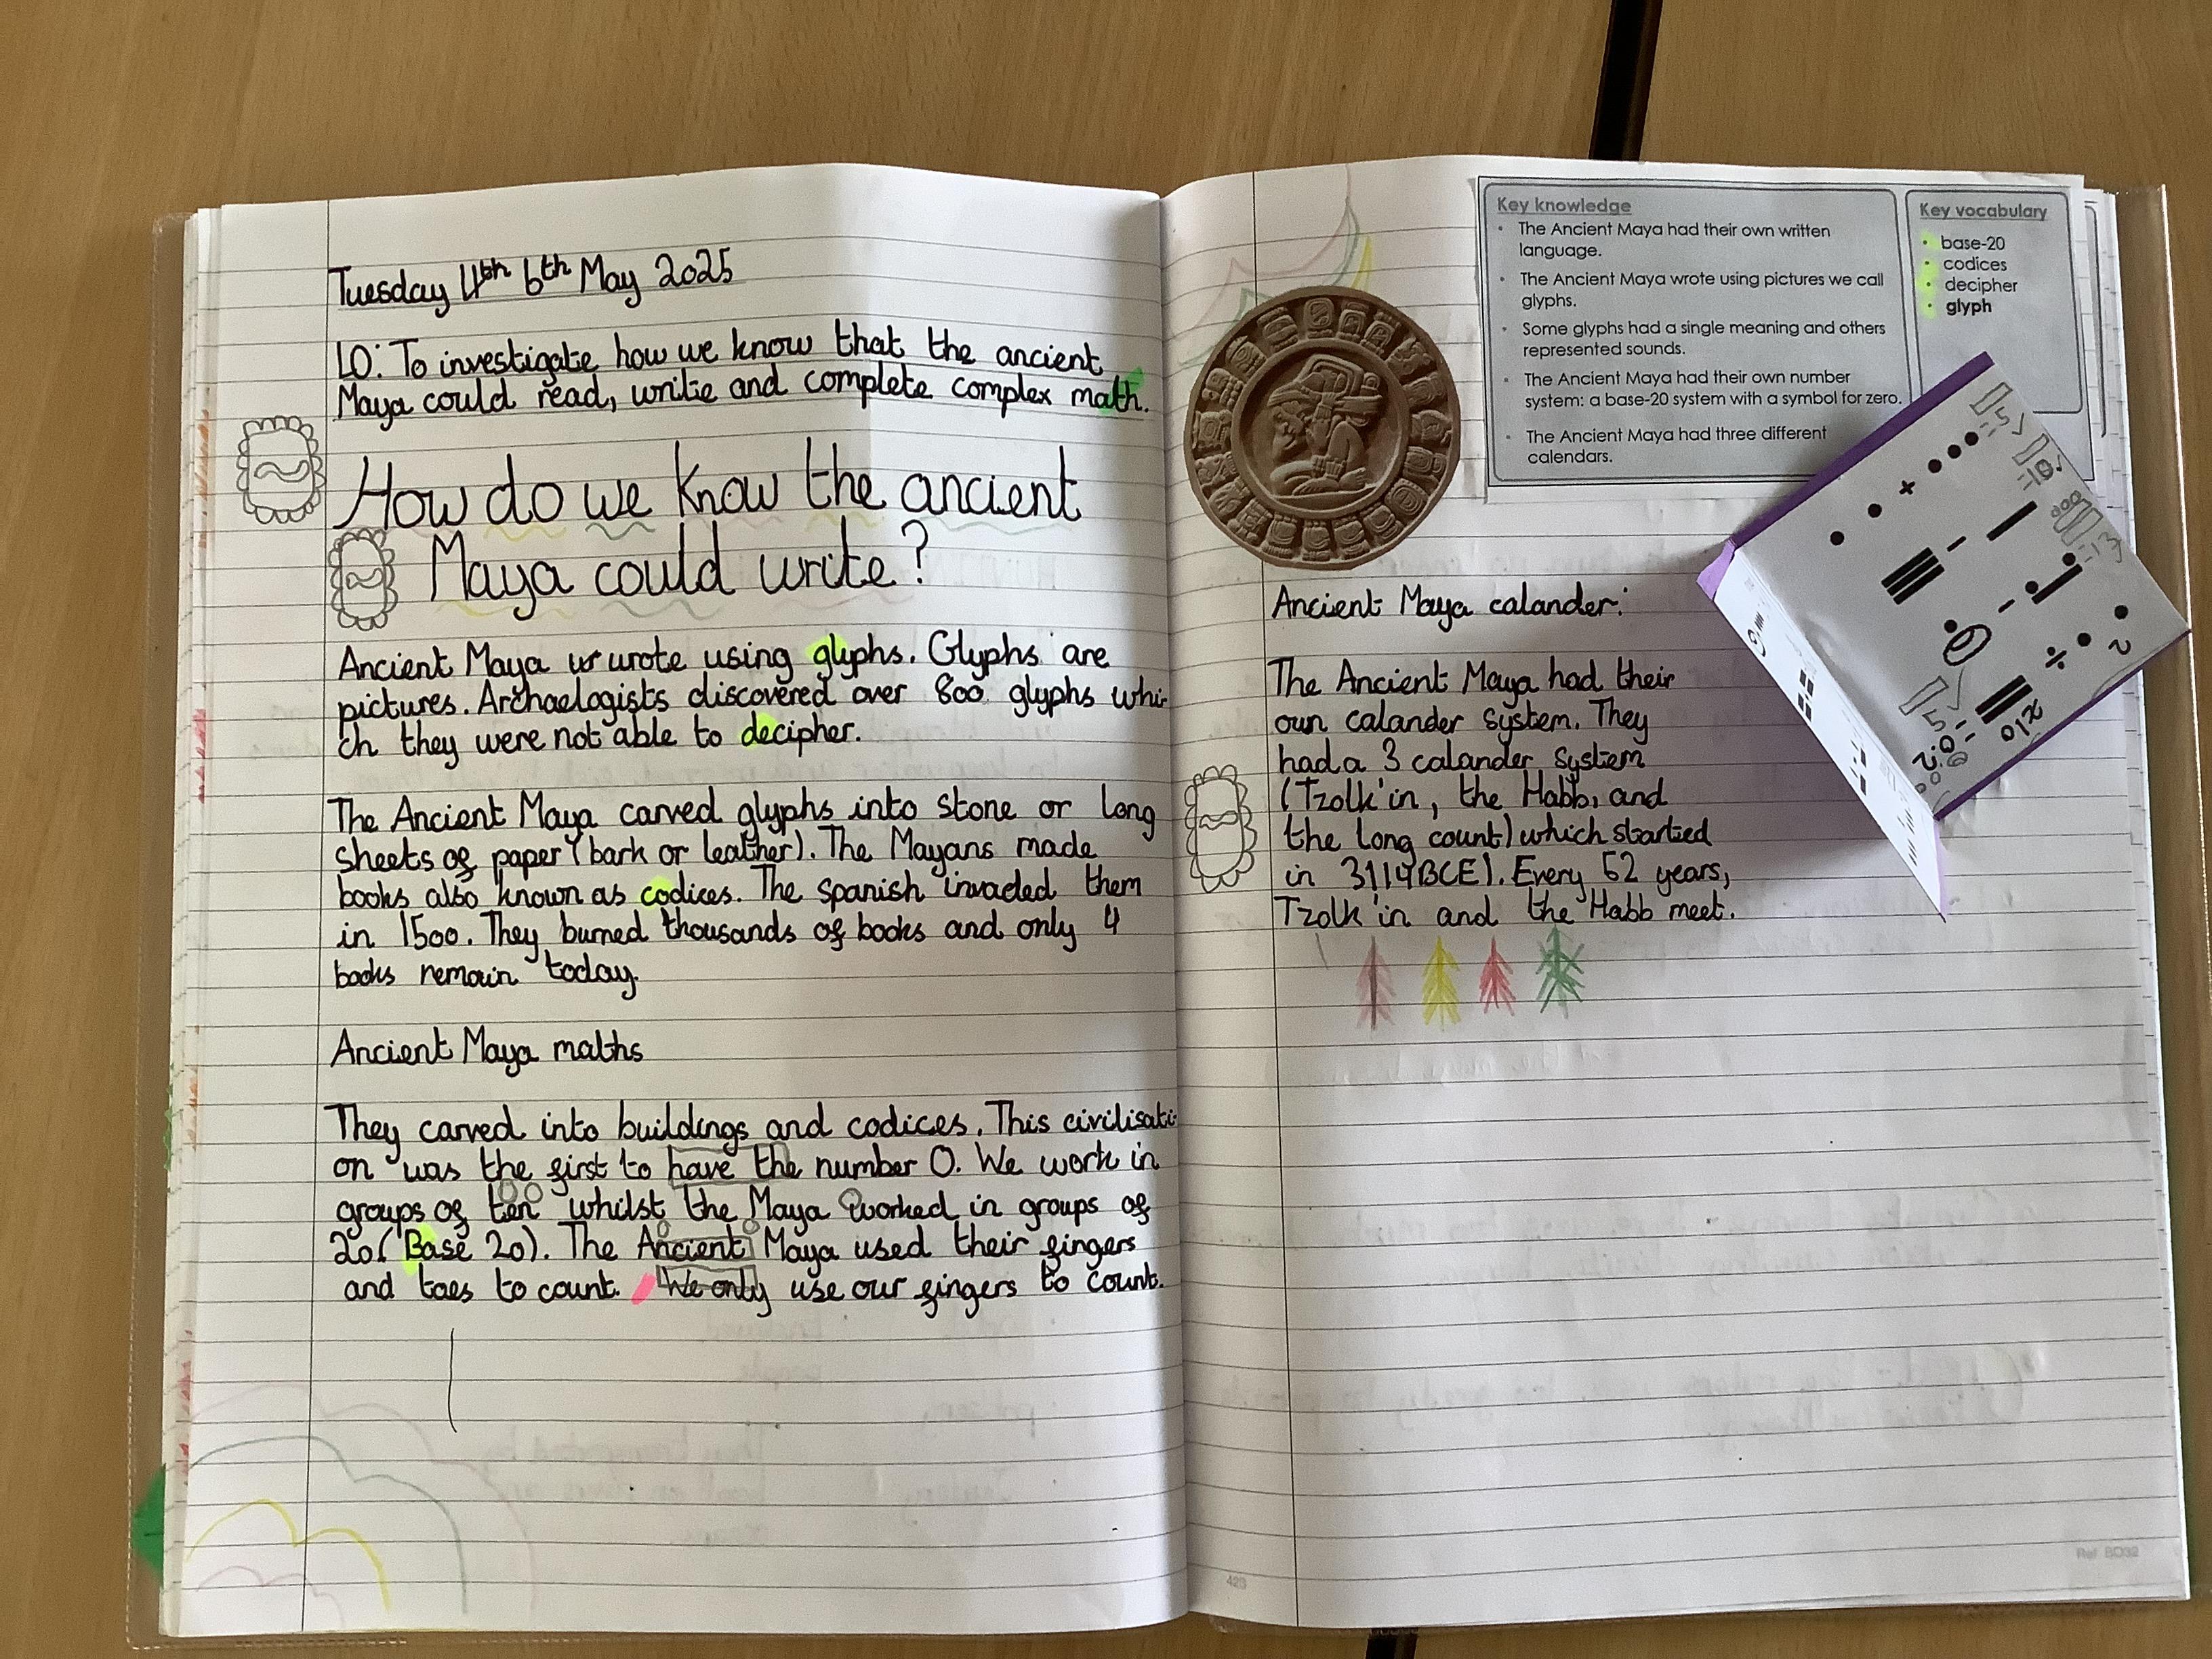 Tuesday 4th 6th May 2025
LO: To investigate how we know that the ancient
Maya could read, write and complete complex math.
How do we know the ancient
Maya could write?
Ancient Maya wr wrote using glyphs. Glyphs are
pictures. Archaelogists discovered over 800 glyphs whi-
ch they were not able to decipher.
The Ancient Maya carved glyphs into stone or long
sheets of paper (bark or leather). The Mayans made
books also known as codices. The spanish invaded them
in 1500. They burned thousands of books and only 4
books remain today.
Ancient Maya maths
They carved into buildings and codices. This civilisati-
on was the first to have the number 0. We work in
groups of ten whilst the Maya worked in groups of
20( Base 20). The Ancient Maya used their fingers
and toes to count. We only use our fingers to count.
Key knowledge
• The Ancient Maya had their own written
language.
• The Ancient Maya wrote using pictures we call
glyphs.
• Some glyphs had a single meaning and others
represented sounds.
• The Ancient Maya had their own number
system: a base-20 system with a symbol for zero.
• The Ancient Maya had three different
calendars.
Key vocabulary
• base-20
• codices
• decipher
• glyph
Ancient Maya calander:
The Ancient Maya had their
own calander system. They
had a 3 calander system
(Tzolk'in, the Habb, and
the long count) which started
in 3114BCE). Every 52 years,
Tzolk'in and the Habb meet.
+
=5
- =10
- =13
÷ 2
5
423
Ref BD32